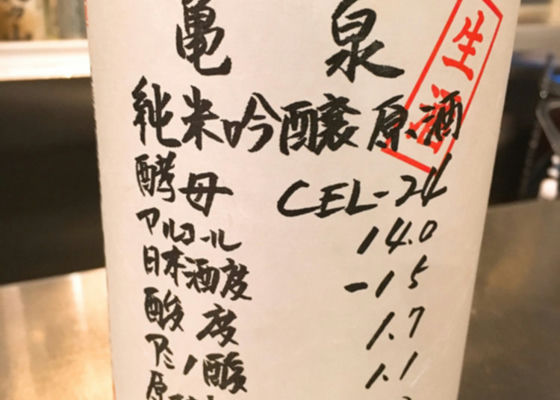 亀泉
生酒
純米吟醸原酒
酵母 CEL-24
アルコール 14.0
日本酒度 -15
酸度 1.7
アミノ酸 1.1